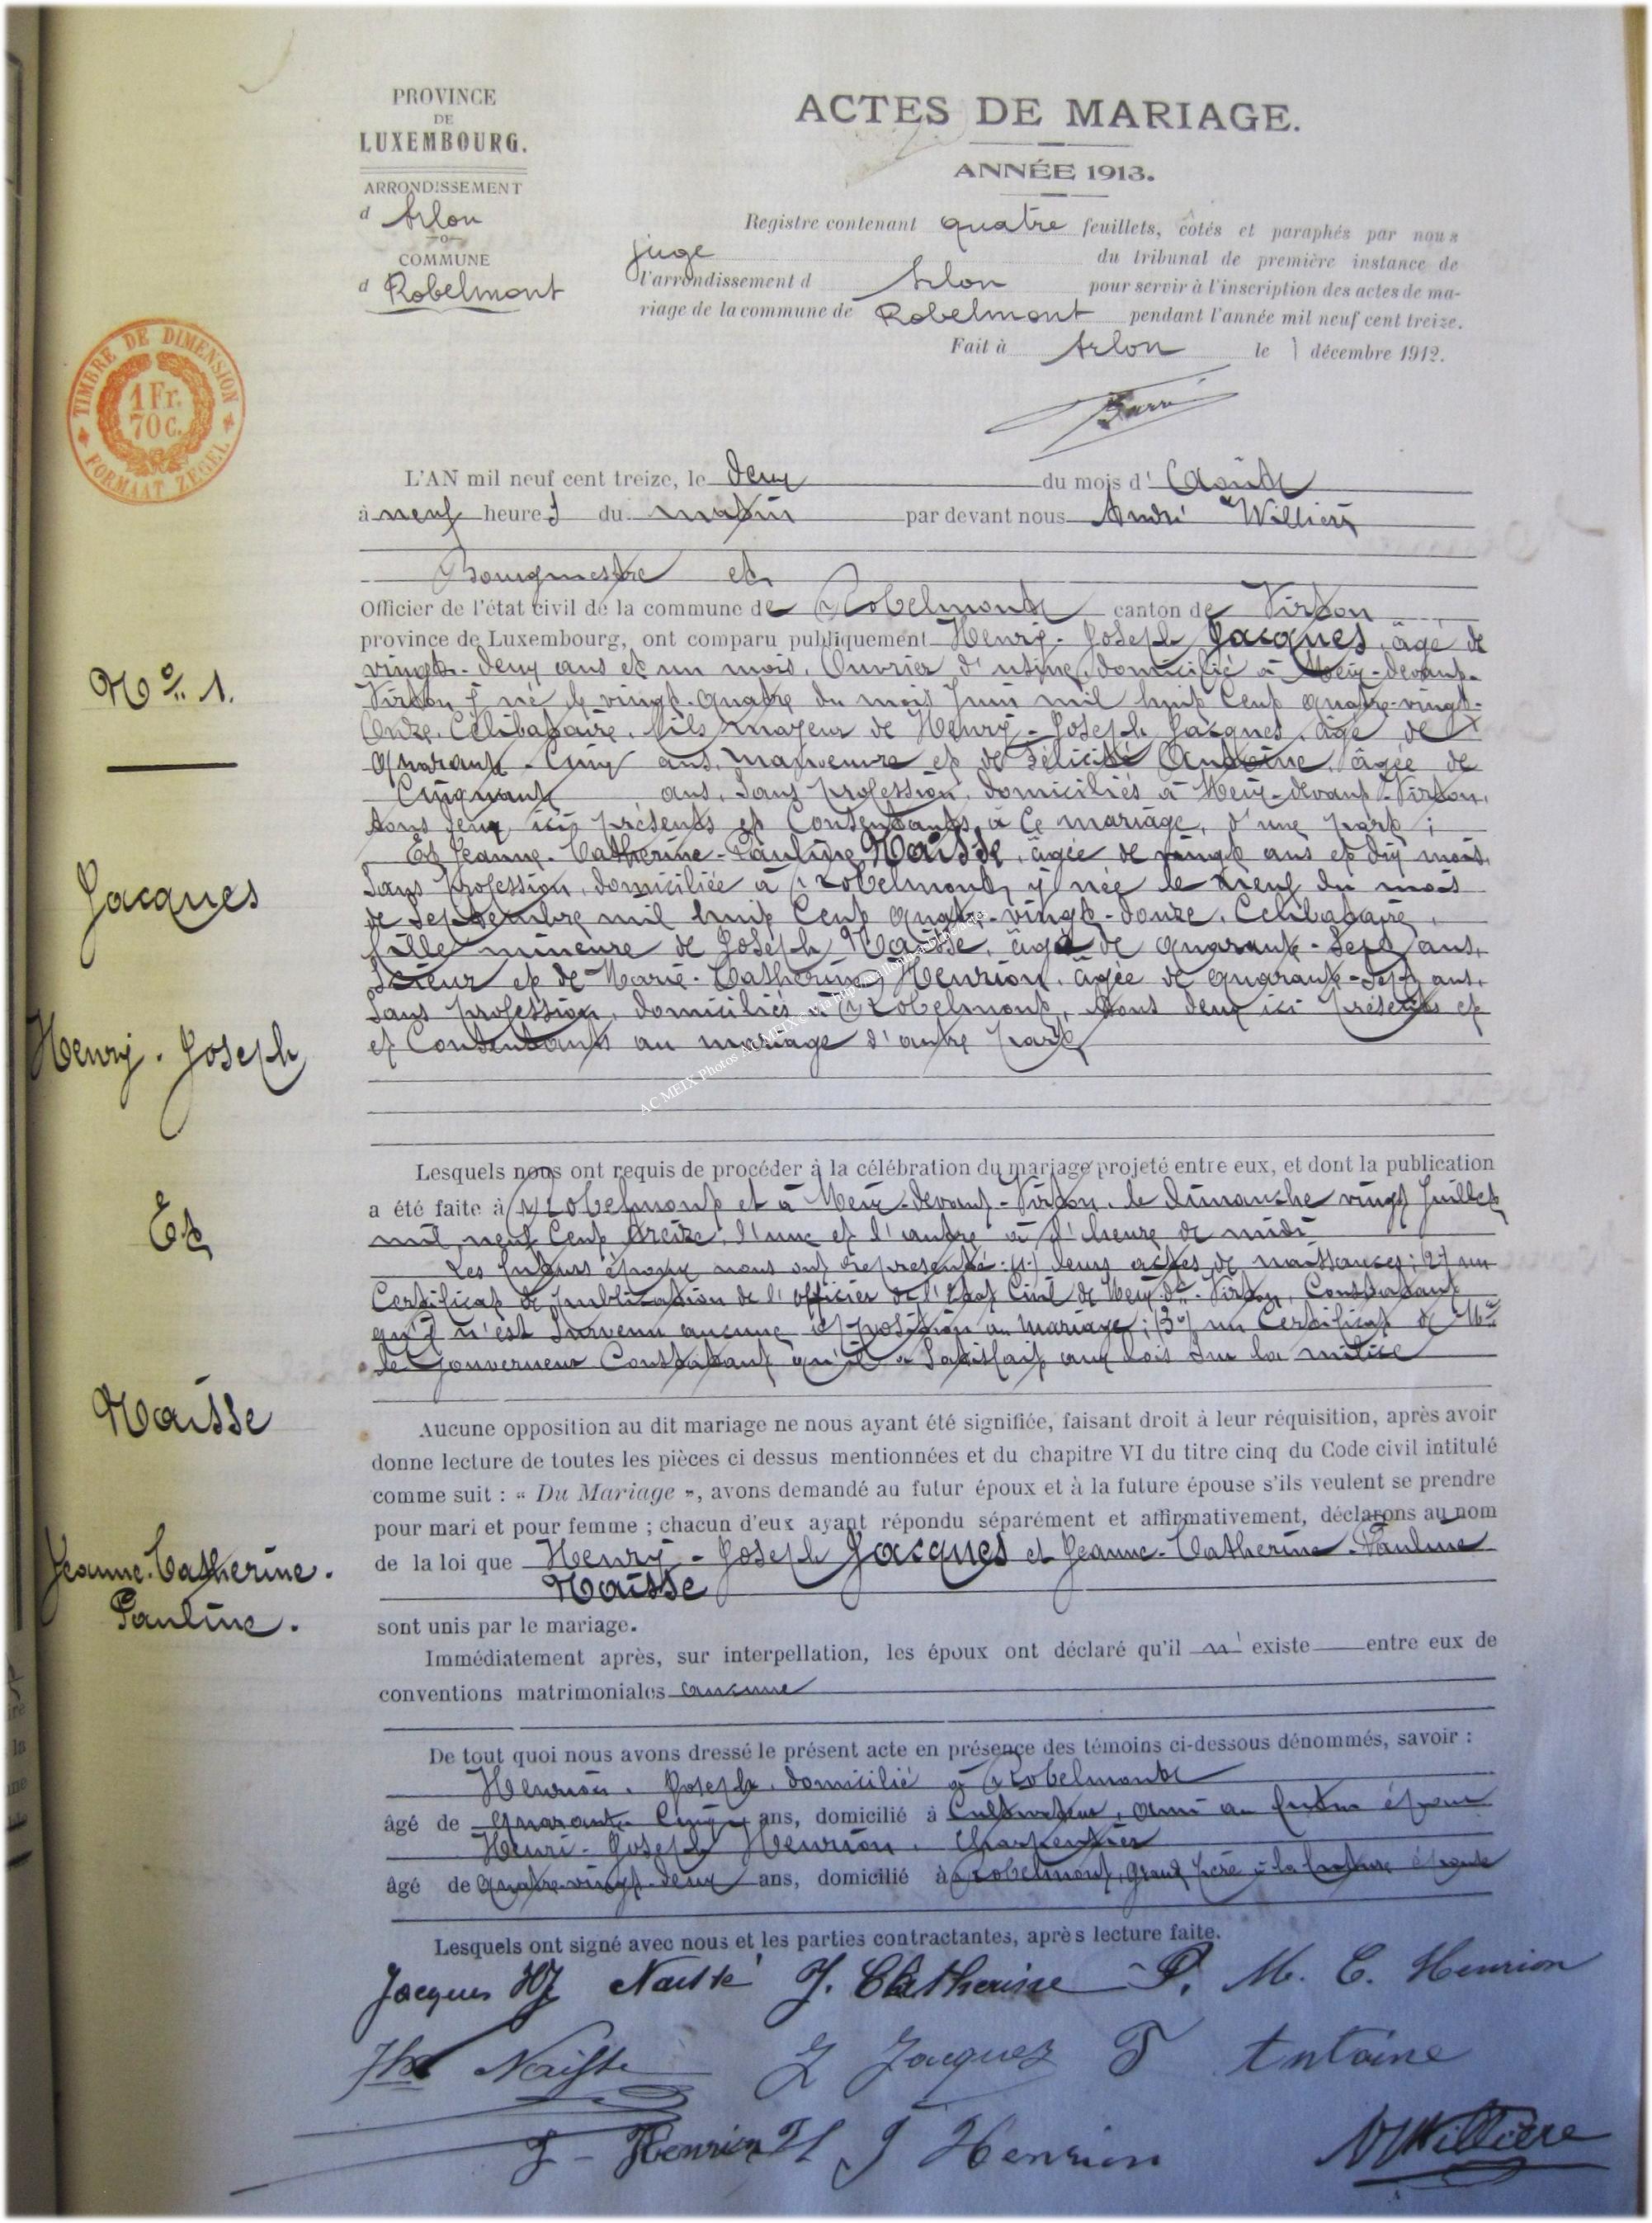 PROVINCE
DE
LUXEMBOURG.
ARRONDISSEMENT
d Arlon
COMMUNE
d Robelmont
ACTES DE MARIAGE.
ANNÉE 1913.
Registre contenant quatre feuillets, cotés et paraphés par nous
juge du tribunal de première instance de
l'arrondissement d Arlon pour servir à l'inscription des actes de ma-
riage de la commune de Robelmont pendant l'année mil neuf cent treize.
Fait à Arlon le 1 décembre 1912.
TIMBRE DE DIMENSION
1 Fr.
70 c.
FORMAAT ZEGEL
L'AN mil neuf cent treize, le deux du mois d' Août
à neuf heures du matin par devant nous André Willière
Bourgmestre et
Officier de l'état civil de la commune de Robelmont canton de Virton
province de Luxembourg, ont comparu publiquement Henry-Joseph Jacques, âgé de
vingt-deux ans et un mois, Ouvrier d'usine, domicilié à Meix-devant-
Virton y né le vingt-quatre du mois Juin mil huit Cent quatre-vingt-
Onze, Célibataire, fils majeur de Henry-Joseph Jacques, âgé de
quarante-Cinq ans, manœuvre et de Félicité Antoine, âgée de
Cinquante ans, Sans profession, domiciliés à Meix-devant-Virton,
tous deux ici présents et Consentants à Ce mariage, d'une part ;
Et Jeanne-Catherine-Pauline Naisse, âgée de vingt ans et dix mois,
Sans profession, domiciliée à Robelmont, y née le neuf du mois
de Septembre mil huit Cent quatre-vingt-douze, Célibataire,
fille mineure de Joseph Naisse, âgé de quarante-Sept ans,
Scieur et de Marie-Catherine Henrion, âgée de quarante-Sept ans,
Sans profession, domiciliés à Robelmont, tous deux ici présents et
et Consentants au mariage d'autre part
N° 1.
Jacques
Henry-Joseph
Et
Naisse
Jeanne-Catherine-
Pauline.
Lesquels nous ont requis de procéder à la célébration du mariage projeté entre eux, et dont la publication
a été faite à Robelmont et à Meix-devant-Virton, le dimanche vingt Juillet
mil neuf Cent treize, l'une et l'autre à l'heure de midi
Les futurs époux nous ont représenté : (1°) leurs actes de naissances ; 2°) un
Certificat de publication de l'officier de l'Etat Civil de Meix dt Virton, Constatant
qu'il n'est Survenu aucune opposition au mariage ; (3°) un Certificat de Mr
le Gouverneur Constatant qu'il a Satisfait aux lois sur la milice
Aucune opposition au dit mariage ne nous ayant été signifiée, faisant droit à leur réquisition, après avoir
donne lecture de toutes les pièces ci dessus mentionnées et du chapitre VI du titre cinq du Code civil intitulé
comme suit : « Du Mariage », avons demandé au futur époux et à la future épouse s'ils veulent se prendre
pour mari et pour femme ; chacun d'eux ayant répondu séparément et affirmativement, déclarons au nom
de la loi que Henry-Joseph Jacques et Jeanne-Catherine-Pauline
Naisse
sont unis par le mariage.
Immédiatement après, sur interpellation, les époux ont déclaré qu'il n' existe entre eux de
conventions matrimoniales aucune
De tout quoi nous avons dressé le présent acte en présence des témoins ci-dessous dénommés, savoir :
Henrion, Joseph, domicilié à Robelmont
âgé de quarante-Cinq ans, domicilié à Cultivateur, ami au futur époux
Henri-Joseph Henrion, Charpentier
âgé de quatre-vingt-deux ans, domicilié à Robelmont, grand père à la future épouse
Lesquels ont signé avec nous et les parties contractantes, après lecture faite.
Jacques HJ Naisse J. Catherine P. M. C. Henrion
Jh Naisse J Jacques F Antoine
J - Henrion H J Henrion A Willière
AC MEIX Photos AC MEIX